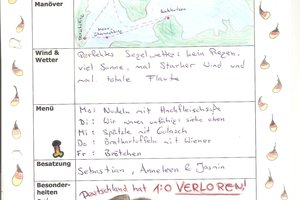 Manöver
Wind &
Wetter
Perfektes Segelwetter: kein Regen,
viel Sonne, mal starker Wind und
mal totale Flaute
Menü
Mo: Nudeln mit Hackfleischsoße
Di: Wir waren
siehe oben
Mi: Spätzle mit Gulasch
Do: Bratkartoffeln mit Wiener
Fr: Brötchen
Besatzung
Sebastian, Anneleen & Jasmin
Besonder-
heiten
Deutschland hat 1:0 VERLOREN!